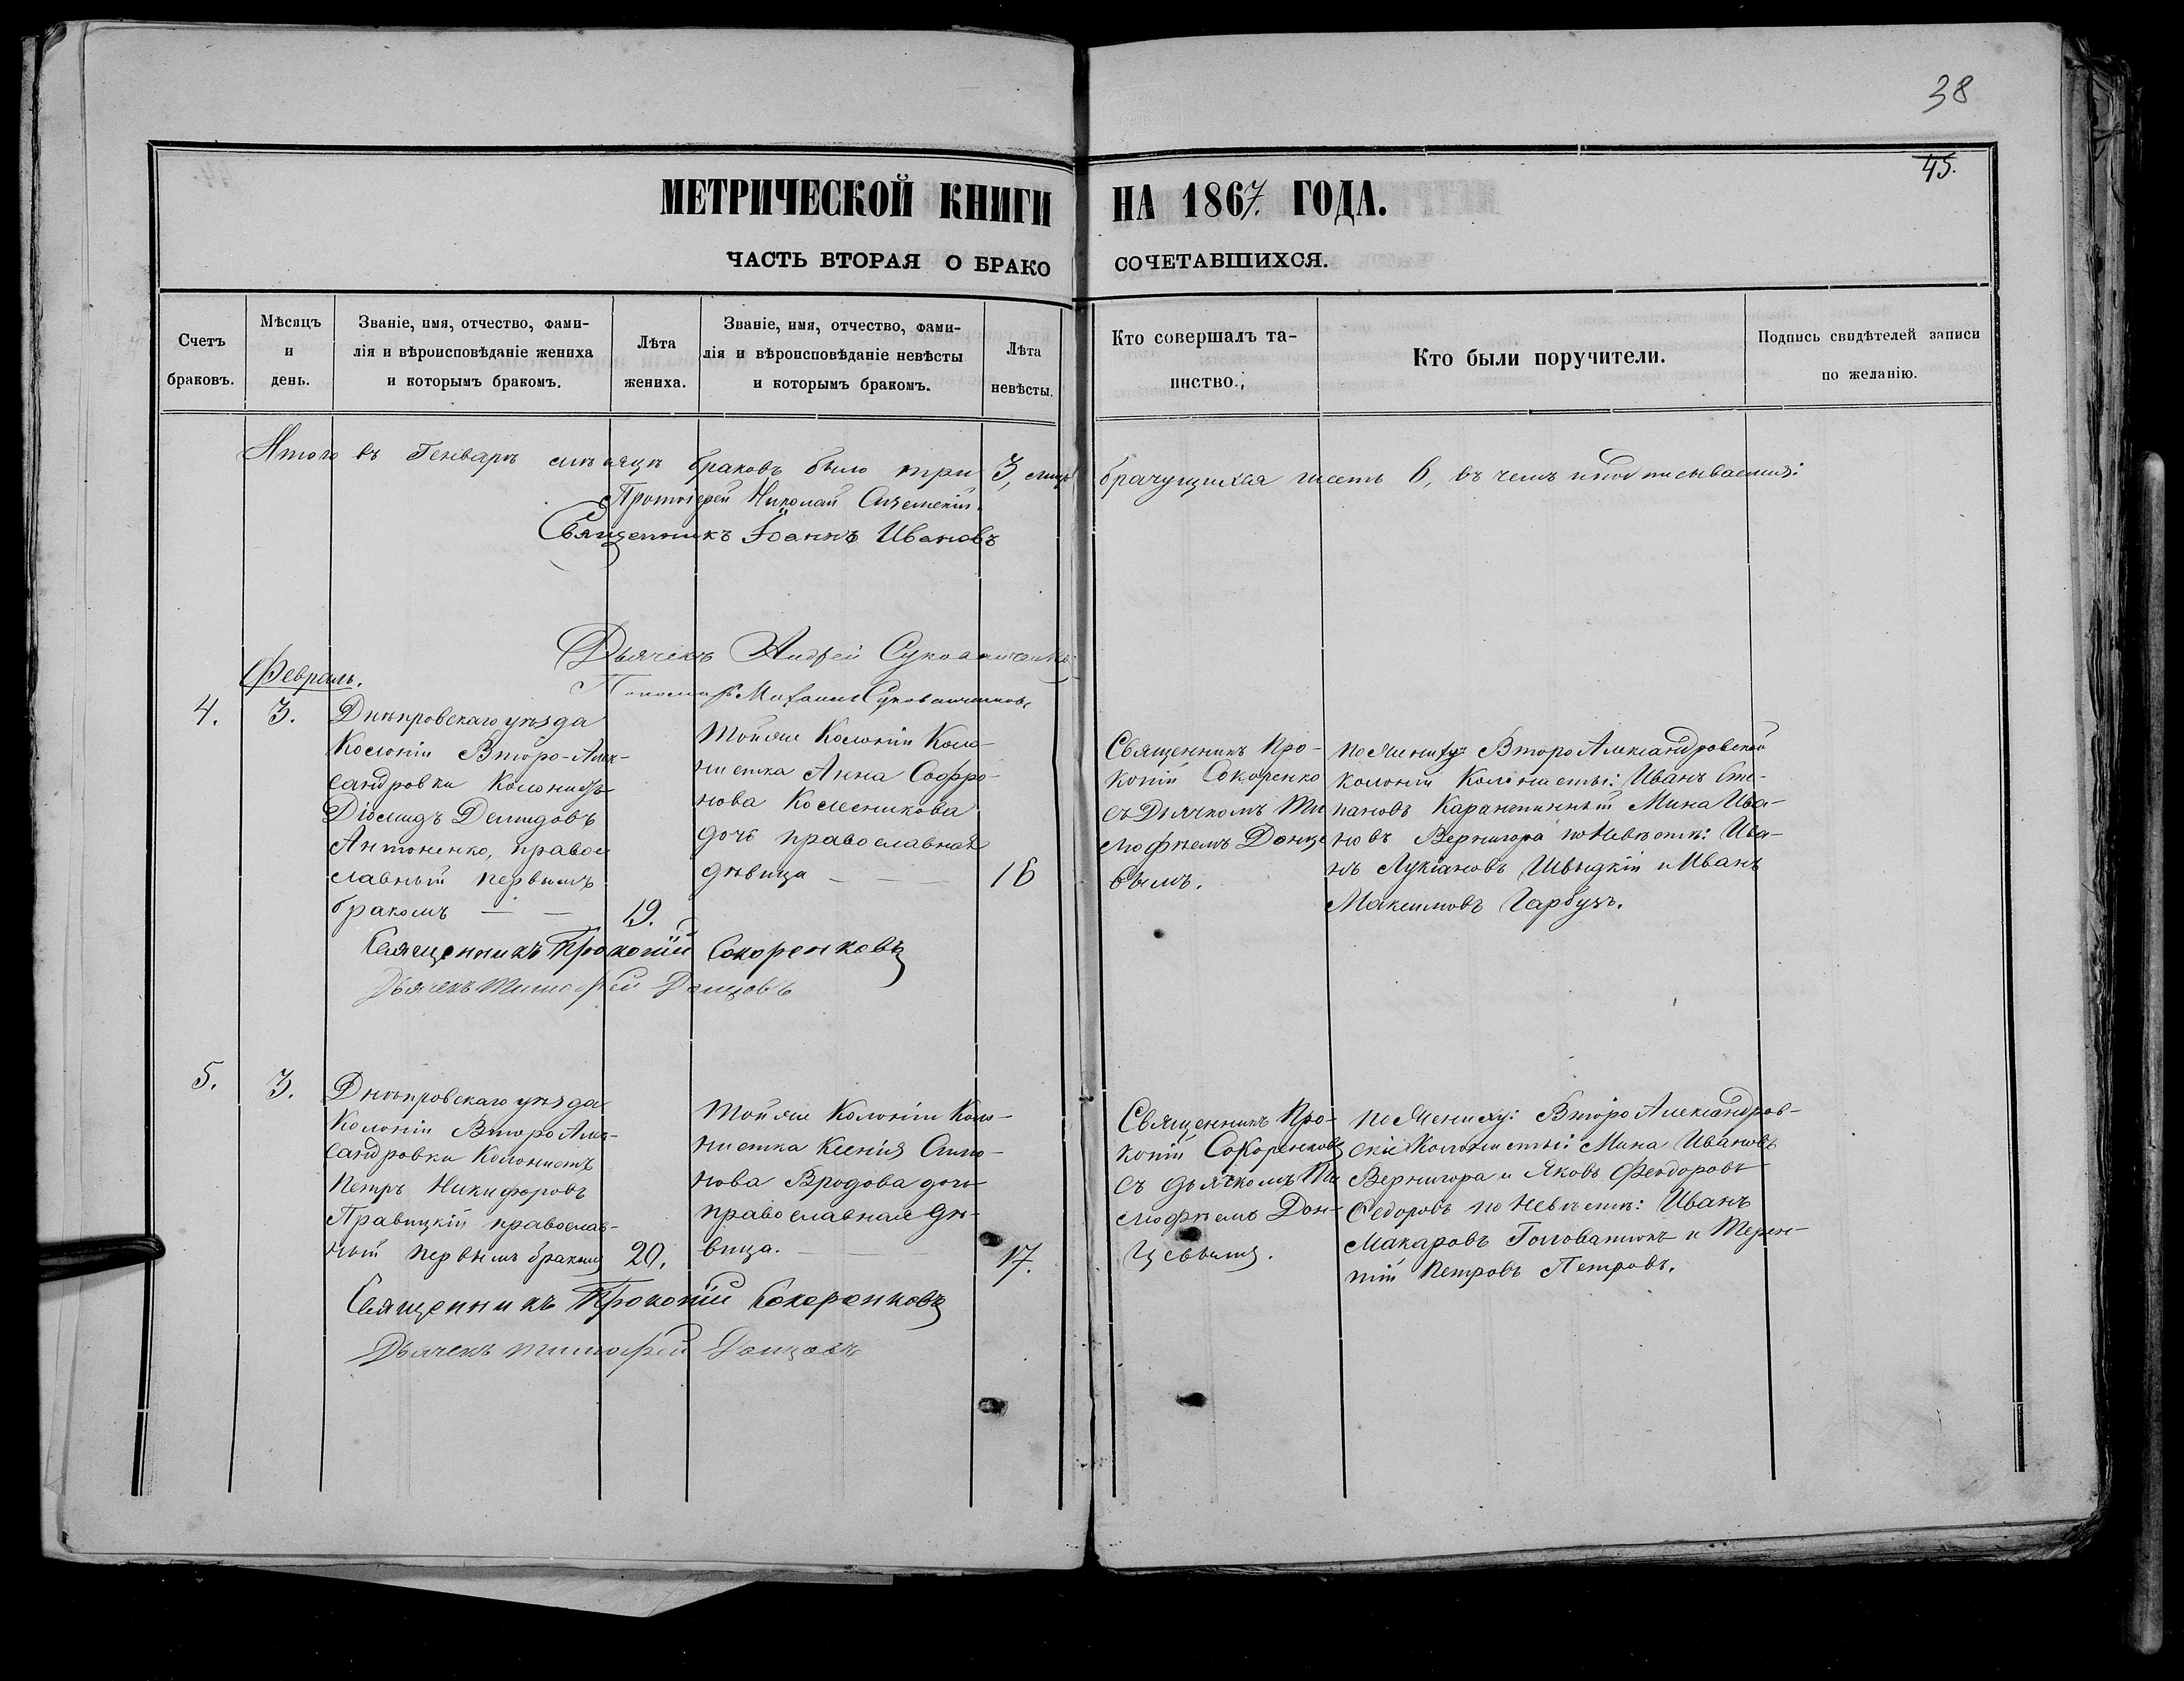 38
45.
МЕТРИЧЕСКОЙ КНИГИ НА 1867. ГОДА.
ЧАСТЬ ВТОРАЯ О БРАКО СОЧЕТАВШИХСЯ.
Счетъ
браковъ.
Мѣсяцъ
и
день.
Званіе, имя, отчество, фами-
лія и вѣроисповѣданіе жениха
и которымъ бракомъ.
Лѣта
жениха.
Званіе, имя, отчество, фами-
лія и вѣроисповѣданіе невѣсты
и которымъ бракомъ.
Лѣта
невѣсты.
Кто совершалъ та-
инство.
Кто были поручители.
Подпись свидѣтелей записи
по желанію.
Итого въ Генварѣ мѣсяцѣ браковъ было три 3, лицъ брачущихся шесть 6, въ чемъ и подписываемся:
Протоіерей Николай
Священникъ Іоаннъ Ивановъ
Дьячекъ Андрей
Пономарь Михаилъ
Февраль.
4.
3.
Днѣпровскаго уѣзда
Колоніи Второ-Алек-
сандровки Колонистъ
Діомидъ Демидовъ
Антоненко, правос
славный первымъ
бракомъ — —
19.
Тойже Колоніи Коло-
нистка Анна Софро-
нова Колесникова
дочь православная
дѣвица — — —
16
Священникъ Про-
копій Сокоренко
съ Дьячкомъ Ти
мофѣемъ Донце
вымъ.
по жениху Второ Александровской
колоній Колонисты: Иванъ Сте-
пановъ Карантинный Мина Ива-
новъ Вернигора по Невѣсте: Ива-
нъ Лукіановъ Швыдкій и Иванъ
Максимовъ Гарбузъ.
Священникъ Прокопій Сокоренковъ
Дьячекъ Тимофей Донцовъ
5.
3.
Днѣпровскаго уѣзда
Колоніи Второ Алек-
сандровки Колонистъ
Петръ Никифоровъ
Правицкій православ-
ный первымъ бракомъ
20.
Тойже Колоніи Коло-
нистка Ксенія Симо-
нова Бродова дочь
православная дѣ-
вица.
17.
Священникъ Про-
копій Сокоренковъ
съ дьячкомъ Ти
мофѣемъ Дон-
цевымъ.
по Жениху: Второ Александров-
скіе Колонисты: Мина Ивановъ
Вернигора и Яковъ Феодоровъ
Федоровъ по Невѣсте: Иванъ
Макаровъ Головатюкъ и Терен-
тій Петровъ Петровъ.
Священникъ Прокопій Сокоренковъ
Дьячекъ Тимофей Донцовъ